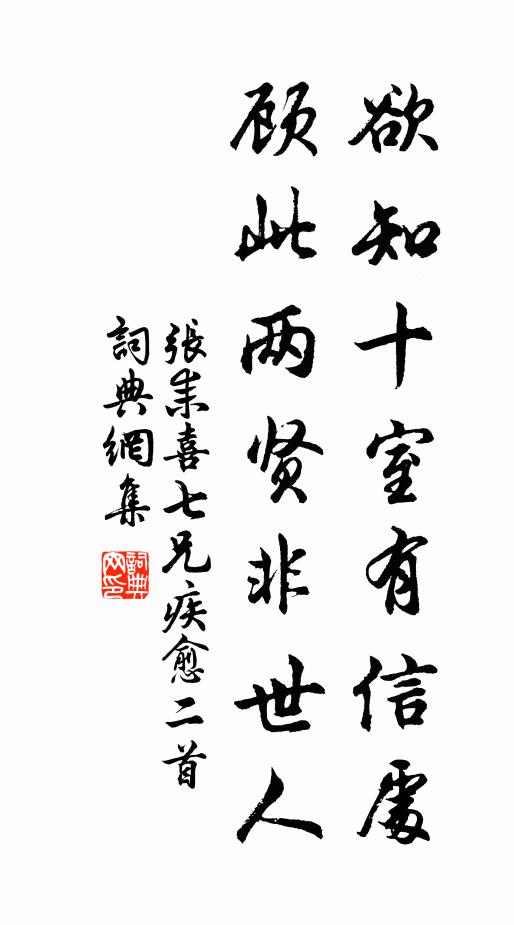 欲知十室有信處
顾此两贤非世人
張耒喜七兄疾愈二首
詞典網集
詞典网印